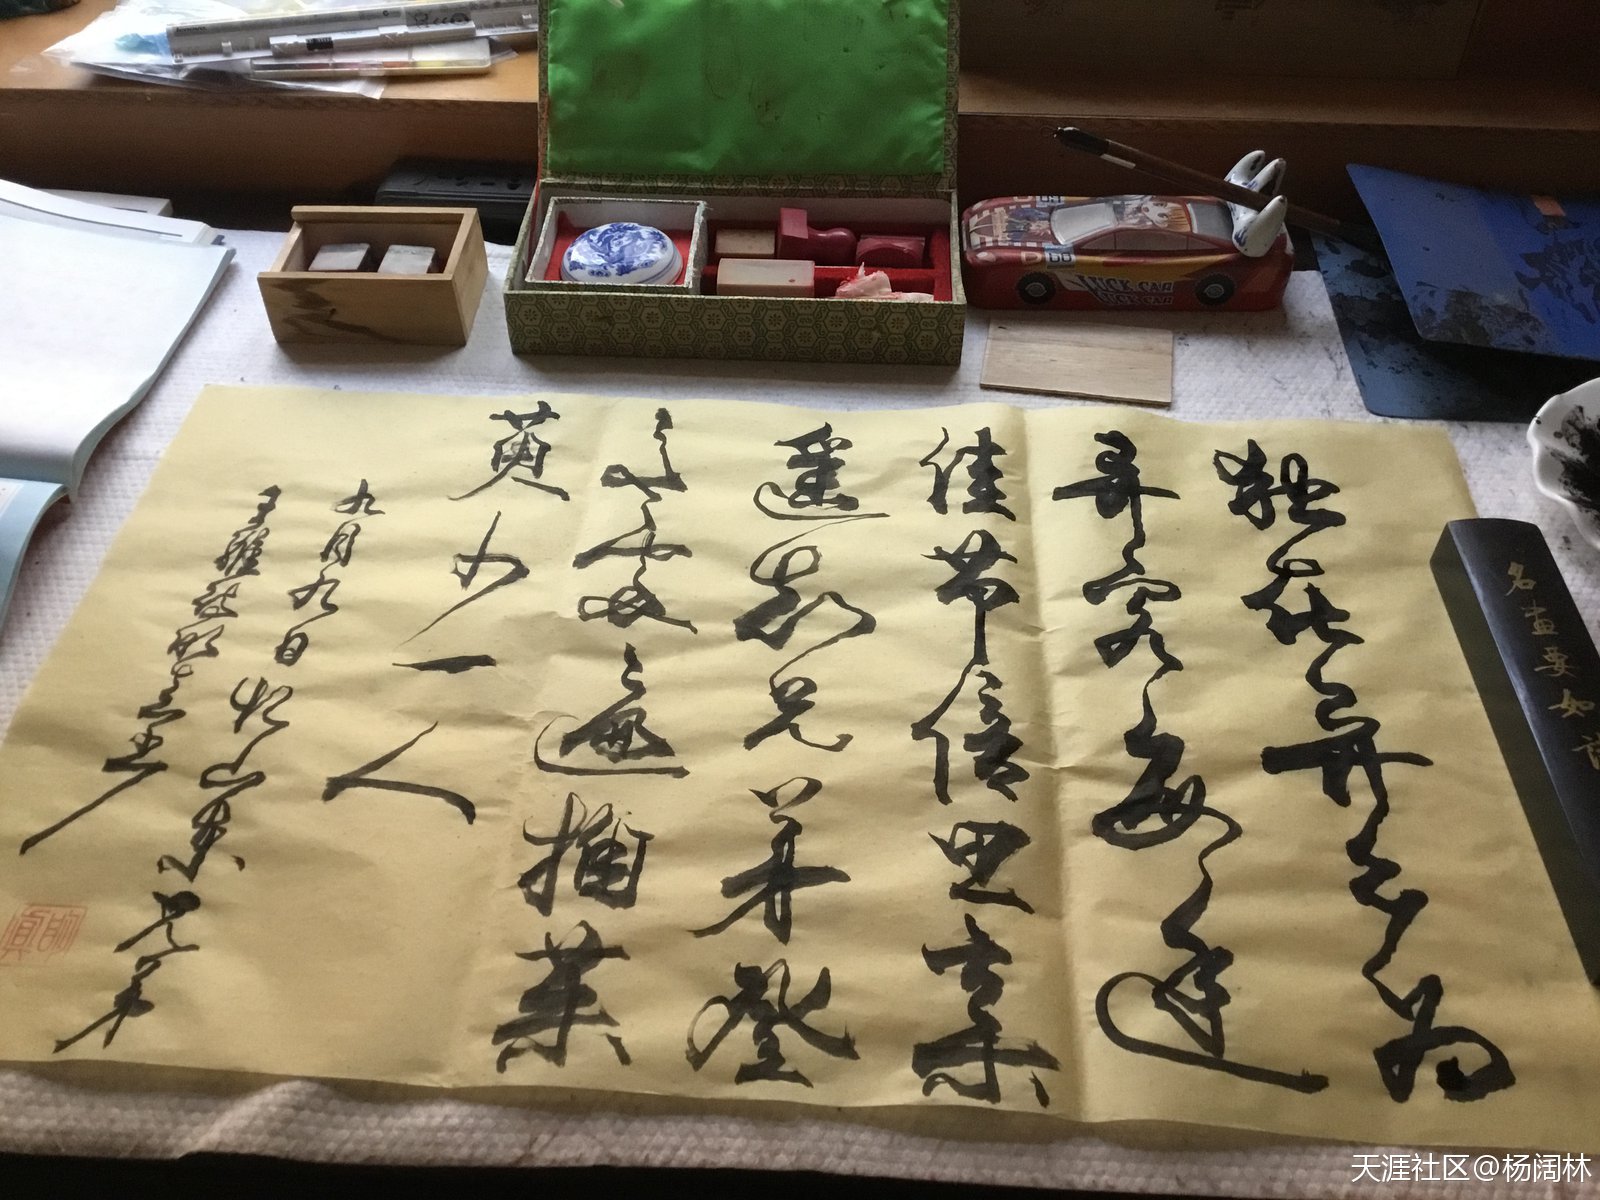 独在异乡为
异客每逢
佳节倍思亲
遥知兄弟登
高处遍插茱
萸少一人
九月九日忆山东兄弟
王維
名畫要如
LUCK CAR
天涯社区@杨阔林